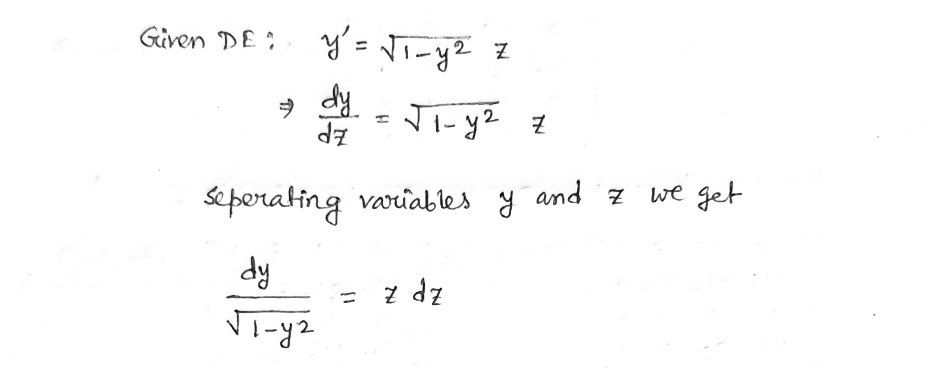 Given DE : y' = √1-y2 z
⇒ dy/dz = √1-y2 z
Seperating variables y and z we get
dy/√1-y2 = z dz